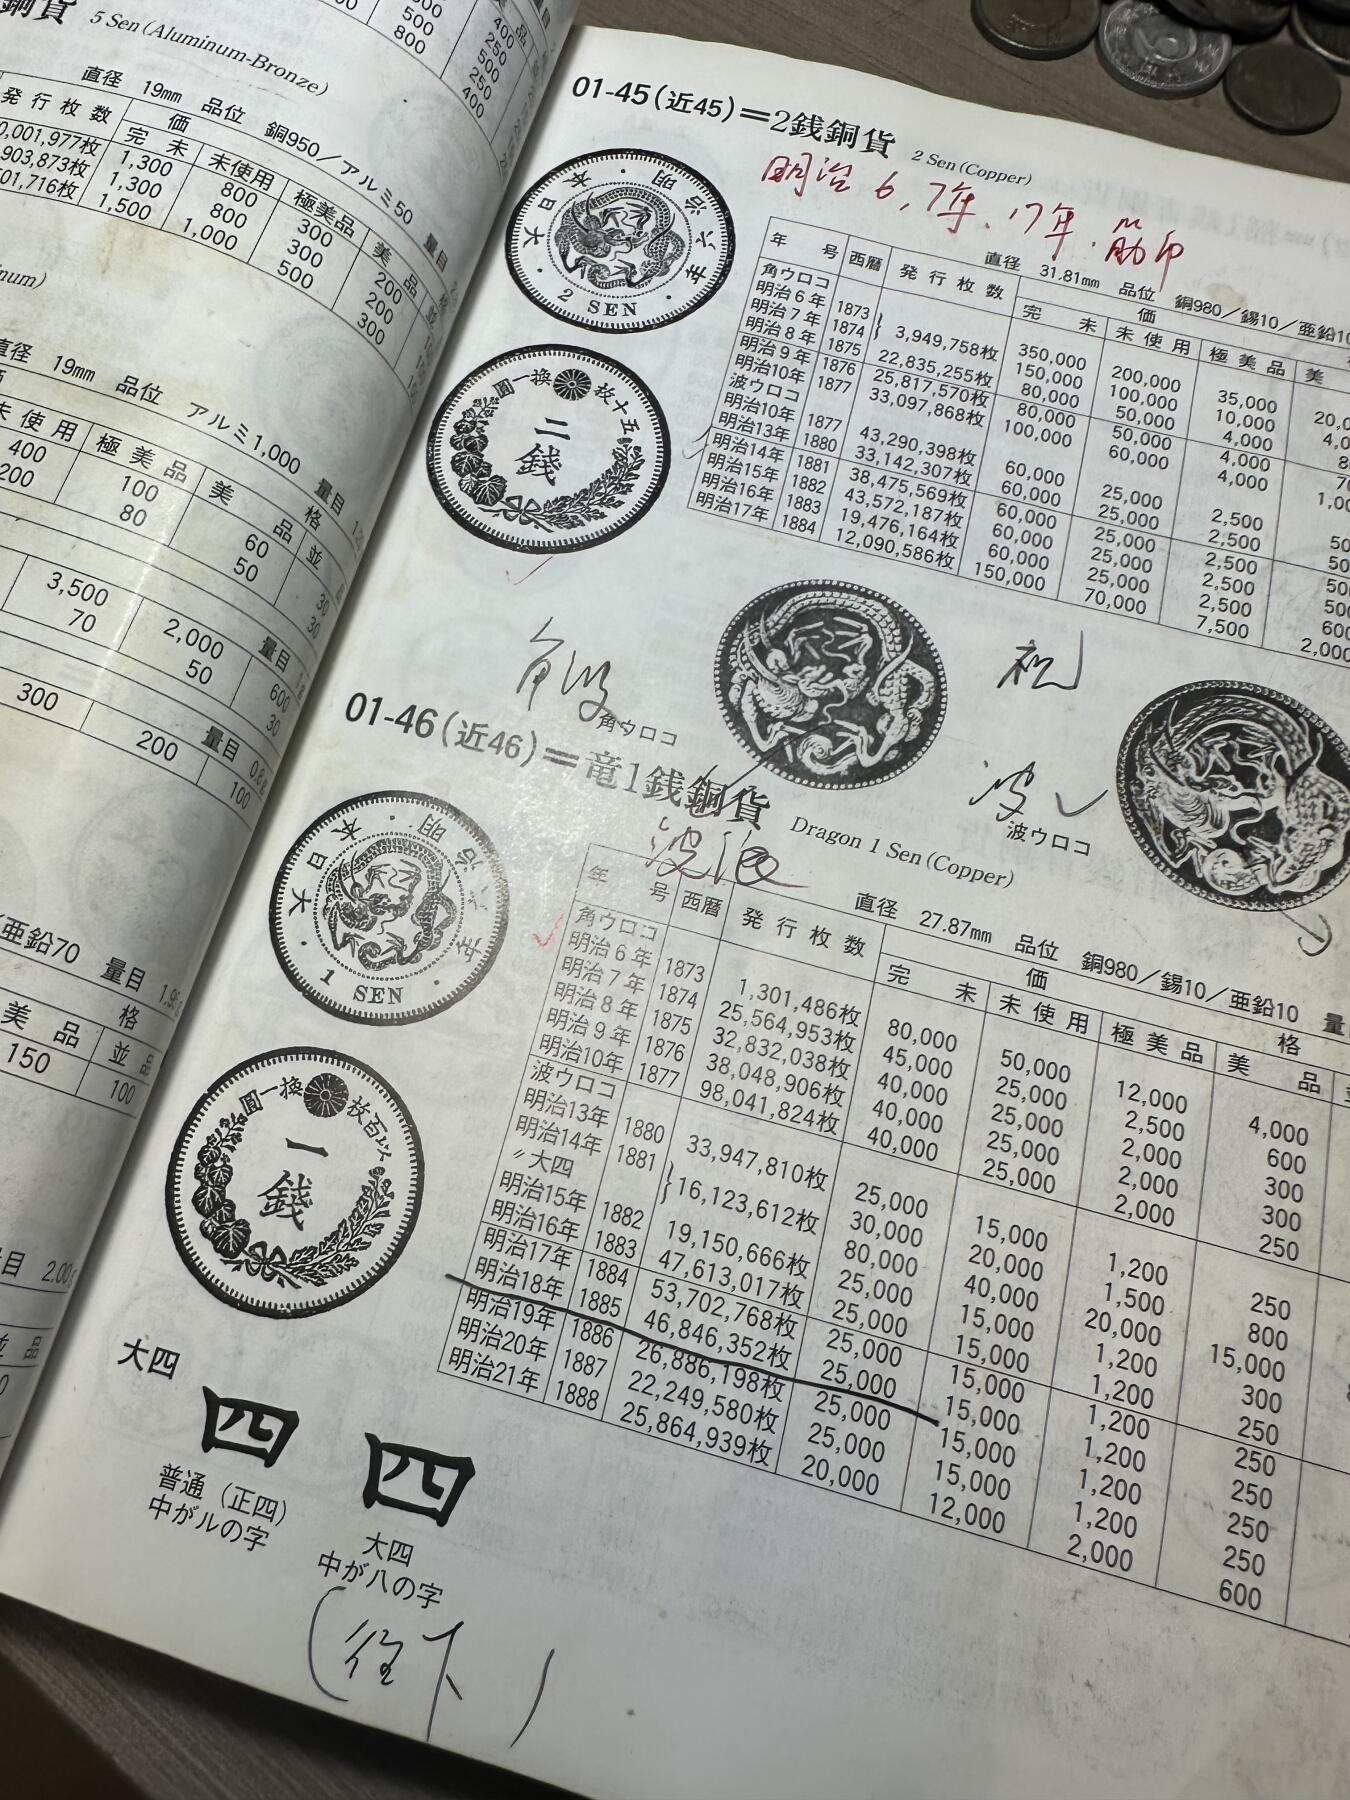 5 Sen (Aluminum-Bronze)
直径 19mm 品位 銅950／アルミ50 量目
発行枚数 価
完未 未使用 極美品 美品
1,300 800 300 200
1,300 800 300 200
1,500 1,000 500 300
直径 19mm 品位 アルミ1,000 量目
未使用 極美品 美品 格 並
400 100 60 30
200 80 50 30
3,500 2,000 量目 600
70 50 30
300 200 量目 0.8g 100
亜鉛70 量目
美品 格 並品
150 100
量目 2.00g
01-45(近45)＝2銭銅貨 2 Sen (Copper)
明治6,7年、17年
直径 31.81mm 品位 銅980／錫10／亜鉛10
大日本・明治六年・
2 SEN
五十枚換一圓
二銭
年号 西暦 発行枚数 価
完未 未使用 極美品 美
角ウロコ
明治6年 1873 3,949,758枚 350,000 200,000 35,000
明治7年 1874 150,000 100,000 10,000
明治8年 1875 22,835,255枚 80,000 50,000 4,000
明治9年 1876 25,817,570枚 80,000 50,000 4,000
明治10年 1877 33,097,868枚 100,000 60,000 4,000
波ウロコ
明治10年 1877 43,290,398枚 60,000 25,000 2,500
明治13年 1880 33,142,307枚 60,000 25,000 2,500
明治14年 1881 38,475,569枚 60,000 25,000 2,500
明治15年 1882 43,572,187枚 60,000 25,000 2,500
明治16年 1883 19,476,164枚 60,000 25,000 2,500
明治17年 1884 12,090,586枚 150,000 70,000 7,500 2,000
角ウロコ
波ウロコ
01-46(近46)＝竜1銭銅貨 Dragon 1 Sen (Copper)
直径 27.87mm 品位 銅980／錫10／亜鉛10 量
大日本・明治六年
1 SEN
以百枚換一圓
一銭
年号 西暦 発行枚数 価格
完未 未使用 極美品 美品
角ウロコ
明治6年 1873 1,301,486枚 80,000 50,000 12,000 4,000
明治7年 1874 25,564,953枚 45,000 25,000 2,500 600
明治8年 1875 32,832,038枚 40,000 25,000 2,000 300
明治9年 1876 38,048,906枚 40,000 25,000 2,000 300
明治10年 1877 98,041,824枚 40,000 25,000 2,000 250
波ウロコ
明治13年 1880 33,947,810枚 25,000 15,000 1,200 250
明治14年 1881 16,123,612枚 30,000 20,000 1,500 800
〃大四 80,000 40,000 20,000 15,000
明治15年 1882 19,150,666枚 25,000 15,000 1,200 300
明治16年 1883 47,613,017枚 25,000 15,000 1,200 250
明治17年 1884 53,702,768枚 25,000 15,000 1,200 250
明治18年 1885 46,846,352枚 25,000 15,000 1,200 250
明治19年 1886 26,886,198枚 25,000 15,000 1,200 250
明治20年 1887 22,249,580枚 25,000 15,000 1,200 250
明治21年 1888 25,864,939枚 20,000 12,000 2,000 600
大四
四 四
普通（正四）
中がルの字
大四
中が八の字